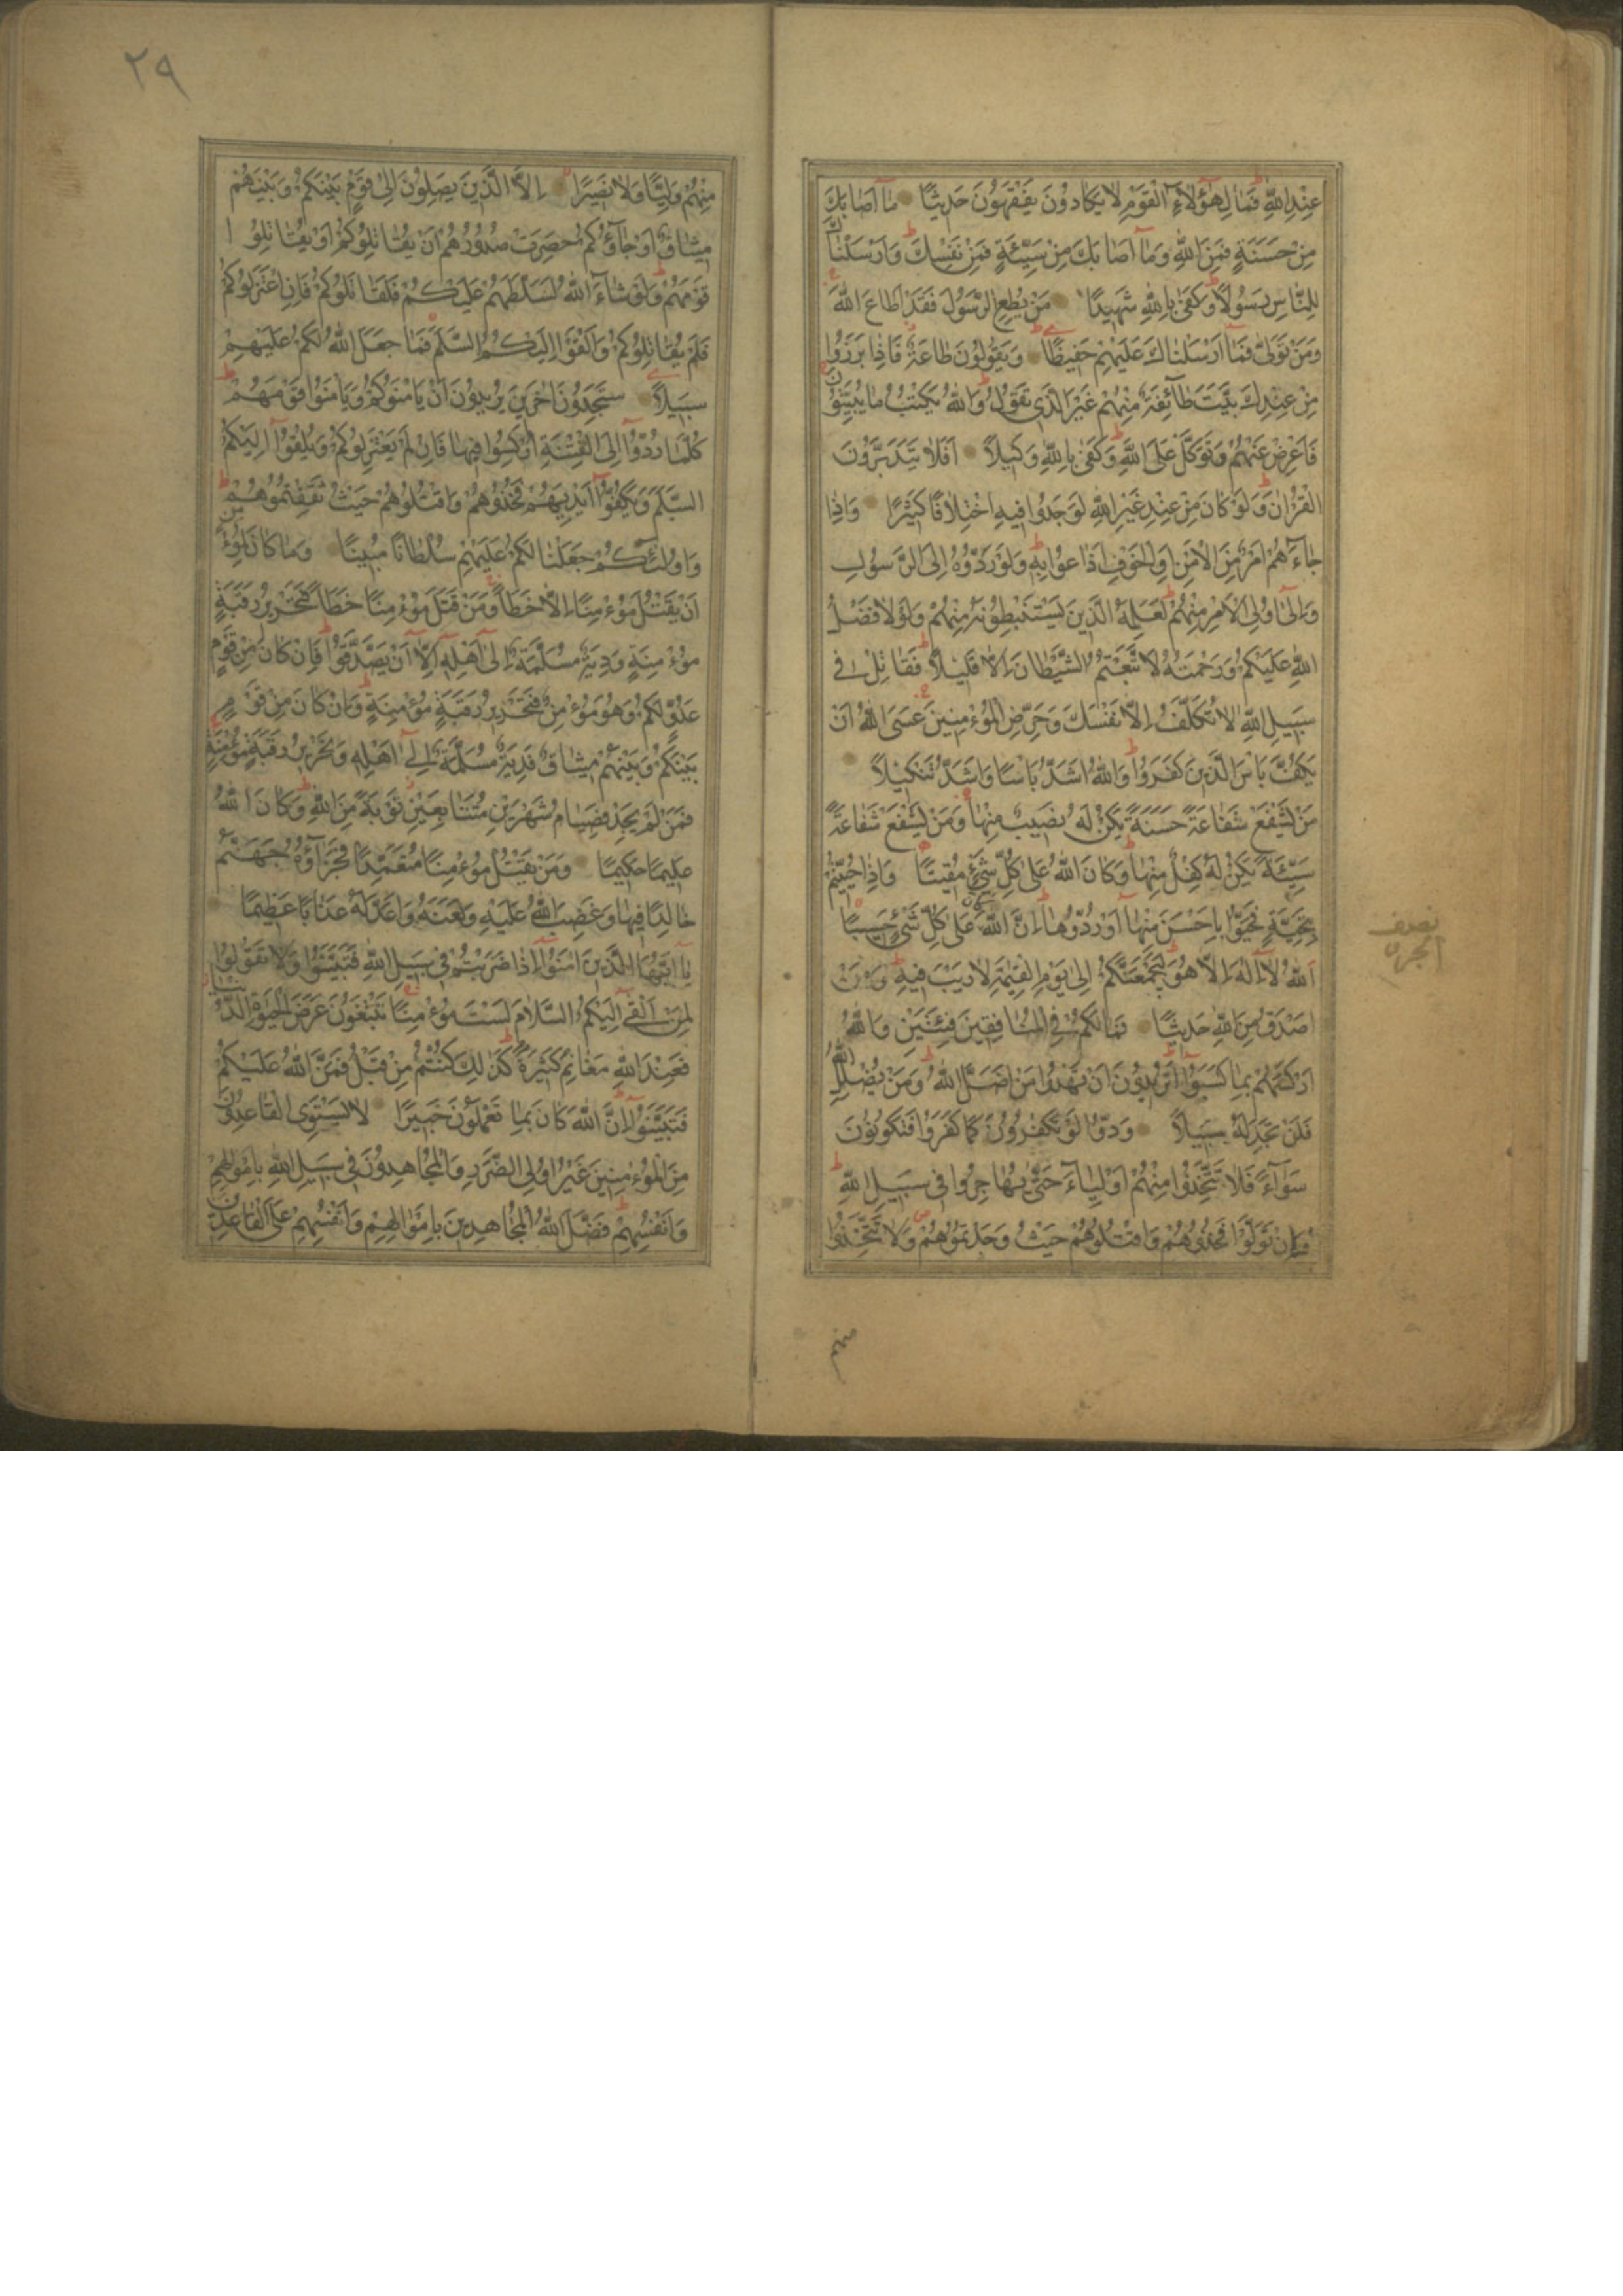 عِنْدِ اللّٰهِ فَمَالِ هٰٓؤُلَاءِ الْقَوْمِ لَا يَكَادُونَ يَفْقَهُونَ حَدِيثًا مَا اَصَابَكَ
مِنْ حَسَنَةٍ فَمِنَ اللّٰهِ وَمَا اَصَابَكَ مِنْ سَيِّئَةٍ فَمِنْ نَفْسِكَ وَاَرْسَلْنَاكَ
لِلنَّاسِ رَسُولًا وَكَفٰى بِاللّٰهِ شَهِيدًا مَنْ يُطِعِ الرَّسُولَ فَقَدْ اَطَاعَ اللّٰهَ
وَمَنْ تَوَلّٰى فَمَا اَرْسَلْنَاكَ عَلَيْهِمْ حَفِيظًا وَيَقُولُونَ طَاعَةٌ فَاِذَا بَرَزُوا
مِنْ عِنْدِكَ بَيَّتَ طَائِفَةٌ مِنْهُمْ غَيْرَ الَّذِي تَقُولُ وَاللّٰهُ يَكْتُبُ مَا يُبَيِّتُونَ
فَاَعْرِضْ عَنْهُمْ وَتَوَكَّلْ عَلَى اللّٰهِ وَكَفٰى بِاللّٰهِ وَكِيلًا اَفَلَا يَتَدَبَّرُونَ
الْقُرْاٰنَ وَلَوْ كَانَ مِنْ عِنْدِ غَيْرِ اللّٰهِ لَوَجَدُوا فِيهِ اخْتِلَافًا كَثِيرًا وَاِذَا
جَاءَهُمْ اَمْرٌ مِنَ الْاَمْنِ اَوِ الْخَوْفِ اَذَاعُوا بِهِ وَلَوْ رَدُّوهُ اِلَى الرَّسُولِ
وَاِلٰى اُولِي الْاَمْرِ مِنْهُمْ لَعَلِمَهُ الَّذِينَ يَسْتَنْبِطُونَهُ مِنْهُمْ وَلَوْلَا فَضْلُ
اللّٰهِ عَلَيْكُمْ وَرَحْمَتُهُ لَاتَّبَعْتُمُ الشَّيْطَانَ اِلَّا قَلِيلًا فَقَاتِلْ فِي
سَبِيلِ اللّٰهِ لَا تُكَلَّفُ اِلَّا نَفْسَكَ وَحَرِّضِ الْمُؤْمِنِينَ عَسَى اللّٰهُ اَنْ
يَكُفَّ بَأْسَ الَّذِينَ كَفَرُوا وَاللّٰهُ اَشَدُّ بَأْسًا وَاَشَدُّ تَنْكِيلًا
مَنْ يَشْفَعْ شَفَاعَةً حَسَنَةً يَكُنْ لَهُ نَصِيبٌ مِنْهَا وَمَنْ يَشْفَعْ شَفَاعَةً
سَيِّئَةً يَكُنْ لَهُ كِفْلٌ مِنْهَا وَكَانَ اللّٰهُ عَلٰى كُلِّ شَيْءٍ مُقِيتًا وَاِذَا حُيِّيتُمْ
بِتَحِيَّةٍ فَحَيُّوا بِاَحْسَنَ مِنْهَا اَوْ رُدُّوهَا اِنَّ اللّٰهَ عَلٰى كُلِّ شَيْءٍ حَسِيبًا
اَللّٰهُ لَا اِلٰهَ اِلَّا هُوَ لَيَجْمَعَنَّكُمْ اِلٰى يَوْمِ الْقِيٰمَةِ لَا رَيْبَ فِيهِ وَمَنْ
اَصْدَقُ مِنَ اللّٰهِ حَدِيثًا فَمَا لَكُمْ فِي الْمُنَافِقِينَ فِئَتَيْنِ وَاللّٰهُ
اَرْكَسَهُمْ بِمَا كَسَبُوا اَتُرِيدُونَ اَنْ تَهْدُوا مَنْ اَضَلَّ اللّٰهُ وَمَنْ يُضْلِلِ اللّٰهُ
فَلَنْ تَجِدَ لَهُ سَبِيلًا وَدُّوا لَوْ تَكْفُرُونَ كَمَا كَفَرُوا فَتَكُونُونَ
سَوَاءً فَلَا تَتَّخِذُوا مِنْهُمْ اَوْلِيَاءَ حَتّٰى يُهَاجِرُوا فِي سَبِيلِ اللّٰهِ
فَاِنْ تَوَلَّوْا فَخُذُوهُمْ وَاقْتُلُوهُمْ حَيْثُ وَجَدْتُمُوهُمْ وَلَا تَتَّخِذُوا
نصف
الجزء
٢٩
مِنْهُمْ وَلِيًّا وَلَا نَصِيرًا اِلَّا الَّذِينَ يَصِلُونَ اِلٰى قَوْمٍ بَيْنَكُمْ وَبَيْنَهُمْ
مِيثَاقٌ اَوْ جَاؤُكُمْ حَصِرَتْ صُدُورُهُمْ اَنْ يُقَاتِلُوكُمْ اَوْ يُقَاتِلُوا
قَوْمَهُمْ وَلَوْ شَاءَ اللّٰهُ لَسَلَّطَهُمْ عَلَيْكُمْ فَلَقَاتَلُوكُمْ فَاِنِ اعْتَزَلُوكُمْ
فَلَمْ يُقَاتِلُوكُمْ وَاَلْقَوْا اِلَيْكُمُ السَّلَمَ فَمَا جَعَلَ اللّٰهُ لَكُمْ عَلَيْهِمْ
سَبِيلًا سَتَجِدُونَ اٰخَرِينَ يُرِيدُونَ اَنْ يَأْمَنُوكُمْ وَيَأْمَنُوا قَوْمَهُمْ
كُلَّمَا رُدُّوا اِلَى الْفِتْنَةِ اُرْكِسُوا فِيهَا فَاِنْ لَمْ يَعْتَزِلُوكُمْ وَيُلْقُوا اِلَيْكُمُ
السَّلَمَ وَيَكُفُّوا اَيْدِيَهُمْ فَخُذُوهُمْ وَاقْتُلُوهُمْ حَيْثُ ثَقِفْتُمُوهُمْ
وَاُولٰئِكُمْ جَعَلْنَا لَكُمْ عَلَيْهِمْ سُلْطَانًا مُبِينًا وَمَا كَانَ لِمُؤْمِنٍ
اَنْ يَقْتُلَ مُؤْمِنًا اِلَّا خَطَأً وَمَنْ قَتَلَ مُؤْمِنًا خَطَأً فَتَحْرِيرُ رَقَبَةٍ
مُؤْمِنَةٍ وَدِيَةٌ مُسَلَّمَةٌ اِلٰى اَهْلِهِ اِلَّا اَنْ يَصَّدَّقُوا فَاِنْ كَانَ مِنْ قَوْمٍ
عَدُوٍّ لَكُمْ وَهُوَ مُؤْمِنٌ فَتَحْرِيرُ رَقَبَةٍ مُؤْمِنَةٍ وَاِنْ كَانَ مِنْ قَوْمٍ
بَيْنَكُمْ وَبَيْنَهُمْ مِيثَاقٌ فَدِيَةٌ مُسَلَّمَةٌ اِلٰى اَهْلِهِ وَتَحْرِيرُ رَقَبَةٍ مُؤْمِنَةٍ
فَمَنْ لَمْ يَجِدْ فَصِيَامُ شَهْرَيْنِ مُتَتَابِعَيْنِ تَوْبَةً مِنَ اللّٰهِ وَكَانَ اللّٰهُ
عَلِيمًا حَكِيمًا وَمَنْ يَقْتُلْ مُؤْمِنًا مُتَعَمِّدًا فَجَزَاؤُهُ جَهَنَّمُ
خَالِدًا فِيهَا وَغَضِبَ اللّٰهُ عَلَيْهِ وَلَعَنَهُ وَاَعَدَّ لَهُ عَذَابًا عَظِيمًا
يَا اَيُّهَا الَّذِينَ اٰمَنُوا اِذَا ضَرَبْتُمْ فِي سَبِيلِ اللّٰهِ فَتَبَيَّنُوا وَلَا تَقُولُوا
لِمَنْ اَلْقٰى اِلَيْكُمُ السَّلَامَ لَسْتَ مُؤْمِنًا تَبْتَغُونَ عَرَضَ الْحَيٰوةِ الدُّنْيَا
فَعِنْدَ اللّٰهِ مَغَانِمُ كَثِيرَةٌ كَذٰلِكَ كُنْتُمْ مِنْ قَبْلُ فَمَنَّ اللّٰهُ عَلَيْكُمْ
فَتَبَيَّنُوا اِنَّ اللّٰهَ كَانَ بِمَا تَعْمَلُونَ خَبِيرًا لَا يَسْتَوِي الْقَاعِدُونَ
مِنَ الْمُؤْمِنِينَ غَيْرُ اُولِي الضَّرَرِ وَالْمُجَاهِدُونَ فِي سَبِيلِ اللّٰهِ بِاَمْوَالِهِمْ
وَاَنْفُسِهِمْ فَضَّلَ اللّٰهُ الْمُجَاهِدِينَ بِاَمْوَالِهِمْ وَاَنْفُسِهِمْ عَلَى الْقَاعِدِينَ